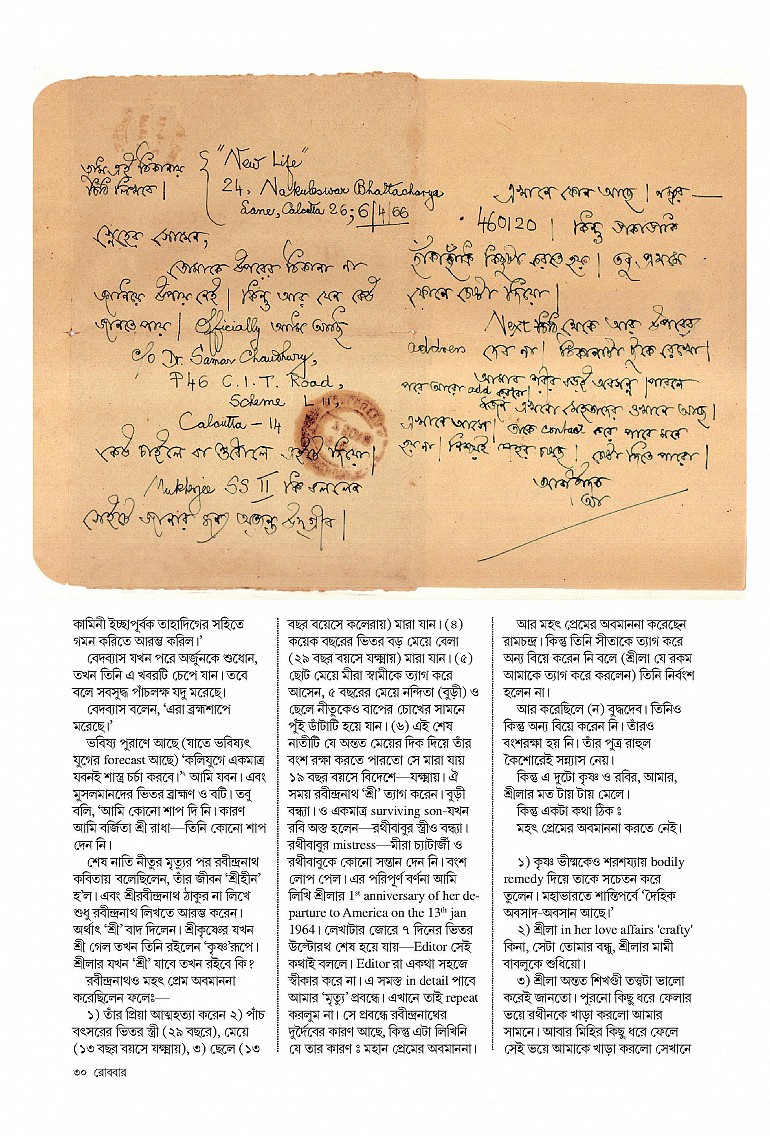 তুমি এই ঠিকানায়
চিঠি লিখবে।
"New Life"
24, Nakuleswar Bhattacharya
Lane, Calcutta 26; 6/4/66
স্নেহের সোমেন,
তোমাকে উপরের ঠিকানা না
জানিয়ে উপায় নেই। কিন্তু আর যেন কেউ
জানতে পায়। Officially আমি আছি
c/o Dr. Samar Chaudhury,
P46 C.I.T. Road,
Scheme
Calcutta - 14
কেউ চাইলে বা শুধোলে এইটে দিয়ো।
Mukherjee SS II কি বললেন
সেইটে জানার জন্য অত্যন্ত উদ্‌গ্রীব।
এখানে ফোন আছে। নম্বর —
460120। কিন্তু ডাকাডাকি
হাঁকাহাঁকি কিছুটা করতে হয়। তবু প্রথমে
ফোনে চেষ্টা দিয়ো।
Next চিঠি থেকে আর উপরের
address দেব না। ঠিকানাটা টুকে রেখো।
আমার শরীর বড়ই অবসন্ন। পারলে
পরে আরো add করবো।
এখানে আসো। তাকে contact করে পাবে মনে
হয় না। নিশ্চয়ই শহর চষছে। চেষ্টা দিতে পারো।
আশীর্বাদক
আ
কামিনী ইচ্ছাপূর্বক তাহাদিগের সহিতে
গমন করিতে আরম্ভ করিল।'
বেদব্যাস যখন পরে অর্জুনকে শুধোন,
তখন তিনি এ খবরটি চেপে যান। তবে
বলে সবসুদ্ধ পাঁচলক্ষ যদু মরেছে।
বেদব্যাস বলেন, 'এরা ব্রহ্মশাপে
মরেছে।'
ভবিষ্য পুরাণে আছে (যাতে ভবিষ্যৎ
যুগের forecast আছে) 'কলিযুগে একমাত্র
যবনই শাস্ত্র চর্চা করবে।'' আমি যবন। এবং
মুসলমানদের ভিতর ব্রাহ্মণ ও বটি। তবু
বলি, 'আমি কোনো শাপ দি নি। কারণ
আমি বর্জিতা শ্রী রাধা—তিনি কোনো শাপ
দেন নি।
শেষ নাতি নীতুর মৃত্যুর পর রবীন্দ্রনাথ
কবিতায় বলেছিলেন, তাঁর জীবন 'শ্রীহীন'
হ'ল। এবং শ্রীরবীন্দ্রনাথ ঠাকুর না লিখে
শুধু রবীন্দ্রনাথ লিখতে আরম্ভ করেন।
অর্থাৎ 'শ্রী' বাদ দিলেন। শ্রীকৃষ্ণের যখন
শ্রী গেল তখন তিনি রইলেন 'কৃষ্ণ'রূপে।
শ্রীলার যখন 'শ্রী' যাবে তখন রইবে কি?
রবীন্দ্রনাথও মহৎ প্রেম অবমাননা
করেছিলেন ফলেঃ—
১) তাঁর প্রিয়া আত্মহত্যা করেন ২) পাঁচ
বৎসরের ভিতর স্ত্রী (২৯ বছরে), মেয়ে
(১৩ বছর বয়সে যক্ষ্মায়), ৩) ছেলে (১৩
বছর বয়েসে কলেরায়) মারা যান। (৪)
কয়েক বছরের ভিতর বড় মেয়ে বেলা
(২৯ বছর বয়সে যক্ষ্মায়) মারা যান। (৫)
ছোট মেয়ে মীরা স্বামীকে ত্যাগ করে
আসেন, ৫ বছরের মেয়ে নন্দিতা (বুড়ী) ও
ছেলে নীতুকেও বাপের চোখের সামনে
পুঁই ডাঁটাটি হয়ে যান। (৬) এই শেষ
নাতীটি যে অন্তত মেয়ের দিক দিয়ে তাঁর
বংশ রক্ষা করতে পারতো সে মারা যায়
১৯ বছর বয়সে বিদেশে—যক্ষ্মায়। ঐ
সময় রবীন্দ্রনাথ 'শ্রী' ত্যাগ করেন। বুড়ী
বন্ধ্যা। ও একমাত্র surviving son-যখন
রবি অস্ত হলেন—রথীবাবুর স্ত্রীও বন্ধ্যা।
রথীবাবুর mistress—মীরা চ্যাটার্জী ও
রথীবাবুকে কোনো সন্তান দেন নি। বংশ
লোপ পেল। এর পরিপূর্ণ বর্ণনা আমি
লিখি শ্রীলার 1st anniversary of her de-
parture to America on the 13th jan
1964। লেখাটার জোরে ৭ দিনের ভিতর
উল্টোরথ শেষ হয়ে যায়—Editor সেই
কথাই বললে। Editor রা একথা সহজে
স্বীকার করে না। এ সমস্ত in detail পাবে
আমার 'মৃত্যু' প্রবন্ধে। এখানে তাই repeat
করলুম না। সে প্রবন্ধে রবীন্দ্রনাথের
দুর্দৈবের কারণ আছে, কিন্তু এটা লিখিনি
যে তার কারণ ঃ মহান প্রেমের অবমাননা।
আর মহৎ প্রেমের অবমাননা করেছেন
রামচন্দ্র। কিন্তু তিনি সীতাকে ত্যাগ করে
অন্য বিয়ে করেন নি বলে (শ্রীলা যে রকম
আমাকে ত্যাগ করে করলেন) তিনি নির্বংশ
হলেন না।
আর করেছিলে (ন) বুদ্ধদেব। তিনিও
কিন্তু অন্য বিয়ে করেন নি। তাঁরও
বংশরক্ষা হয় নি। তাঁর পুত্র রাহুল
কৈশোরেই সন্ন্যাস নেয়।
কিন্তু এ দুটো কৃষ্ণ ও রবির, আমার,
শ্রীলার মত টায় টায় মেলে।
কিন্তু একটা কথা ঠিক ঃ
মহৎ প্রেমের অবমাননা করতে নেই।
১) কৃষ্ণ ভীষ্মকেও শরশয্যায় bodily
remedy দিয়ে তাকে সচেতন করে
তুলেন। মহাভারতে শান্তিপর্বে 'দৈহিক
অবসাদ-অবসান আছে।'
২) শ্রীলা in her love affairs 'crafty'
কিনা, সেটা তোমার বন্ধু, শ্রীলার মামী
বাবলুকে শুধিয়ো।
৩) শ্রীলা অন্তত শিখণ্ডী তত্ত্বটা ভালো
করেই জানতো। পুরনো কিছু ধরে ফেলার
ভয়ে রথীনকে খাড়া করলো আমার
সামনে। আবার মিহির কিছু ধরে ফেলে
সেই ভয়ে আমাকে খাড়া করলো সেখানে
৩০ রোববার